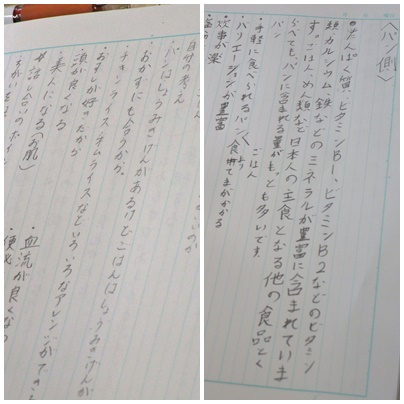 〈パン側〉
たんぱく質、ビタミンB1、ビタミンB2などのビタミン
類、カルシウム、鉄などのミネラルが豊富に含まれていま
す。ごはん、めん類など日本人の主食となる他の食品とく
らべても、パンに含まれる量がもっとも多いです。
パン
・手軽に食べられるパン<ごはん
・バリエーションが豊富
・炊事が楽
自分の考え
・パンはしょうみきげんがあるけどごはんはしょうみきげんが
おかずにも合うから。
チキンライス、オムライスなどいろいろなアレンジができ
おすしが好きだから
・頭が良くなる
・美人になる(お肌)
・血流が良くなる
#話し合いのポイン
・便秘